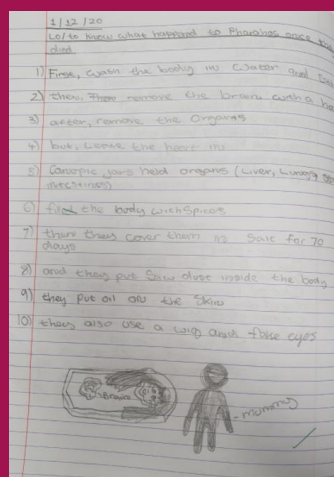 1/12/20
LO/to know what happened to Pharaohs once they
died
1) First, wash the body in water and
2) then. Then remove the brain with a
3) after, remove the organs
4) but, Leave the heart in
5) Canopic jars held organs (Liver, Lungs,
intestines)
6) fill the body with Spices
7) then they cover them in salt for 70
days
8) and they put Saw dust inside the body
9) they put oil on the Skin
10) they also use a wig and fake eyes
Brain
mummy